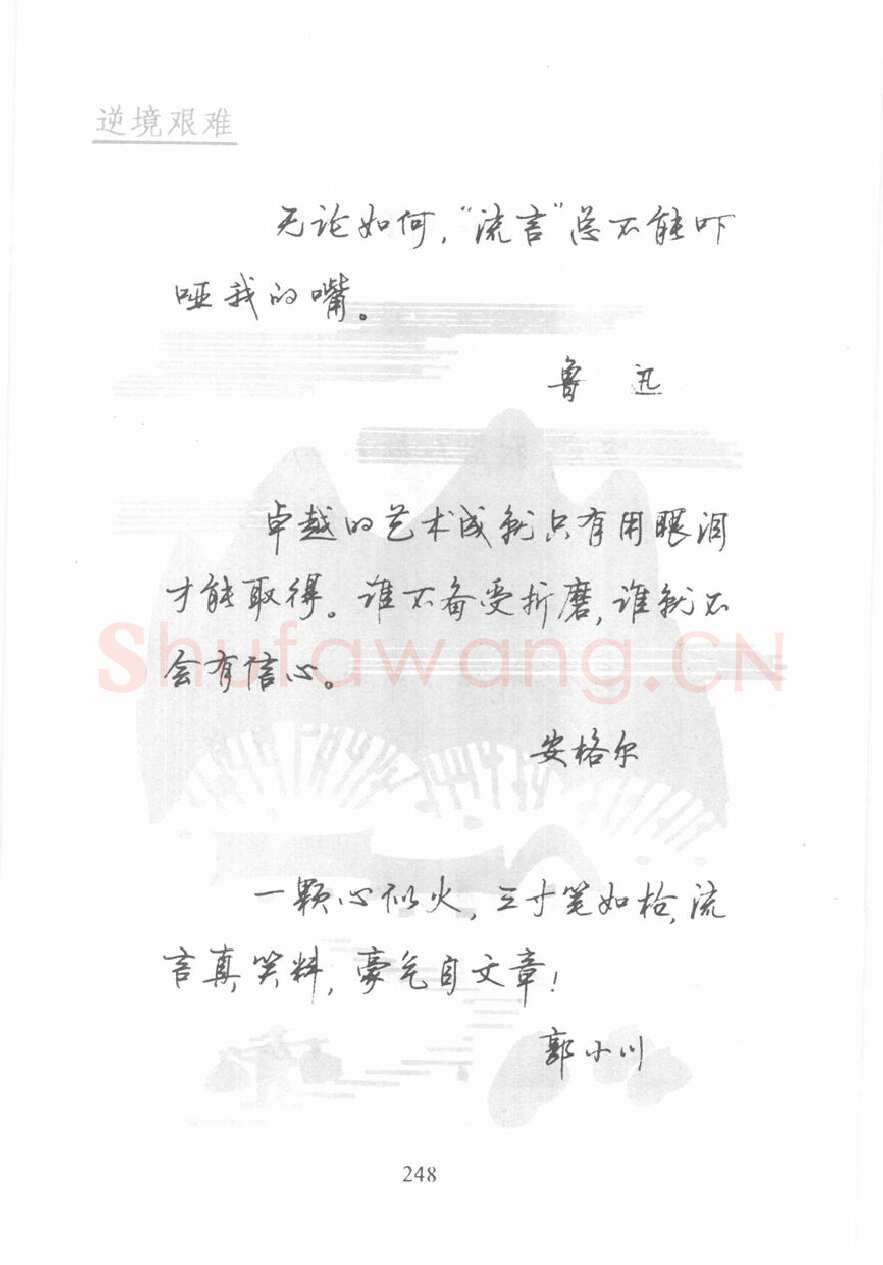 逆境艰难
无论如何，“流言”总不能吓
哑我的嘴。
鲁 迅
卓越的艺术成就只有用眼泪
才能取得。谁不备受折磨，谁就不
会有信心。
Shufawang.CN
安格尔
一颗心似火，三寸笔如枪，流
言真笑料，豪气自文章！
郭小川
248